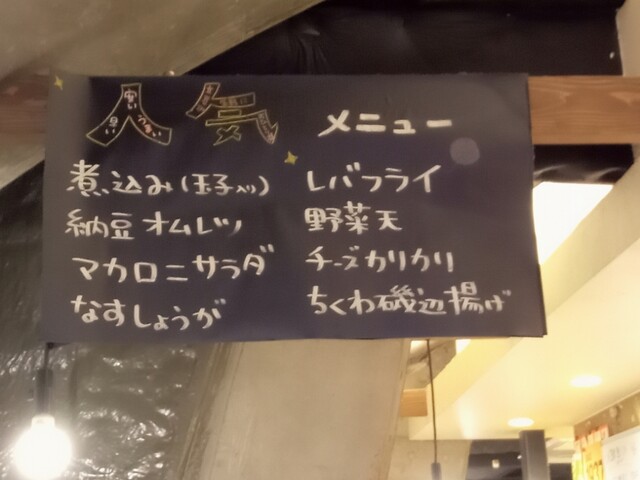 人気メニュー
安い
早い
うまい
煮込み(玉子入り)
納豆オムレツ
マカロニサラダ
なすしょうが
レバフライ
野菜天
チーズカリカリ
ちくわ磯辺揚げ